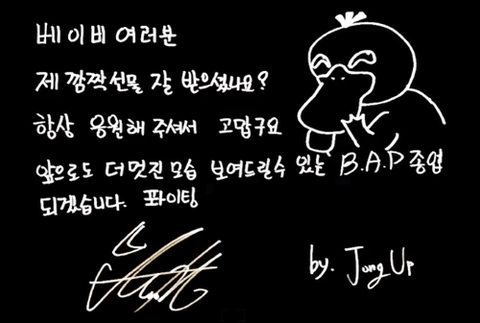 베이비 여러분
제 깜짝선물 잘 받으셨나요?
항상 응원해 주셔서 고맙구요
앞으로도 더 멋진 모습 보여드릴수 있는 B.A.P 종업
되겠습니다. 퐈이팅
by. Jong Up